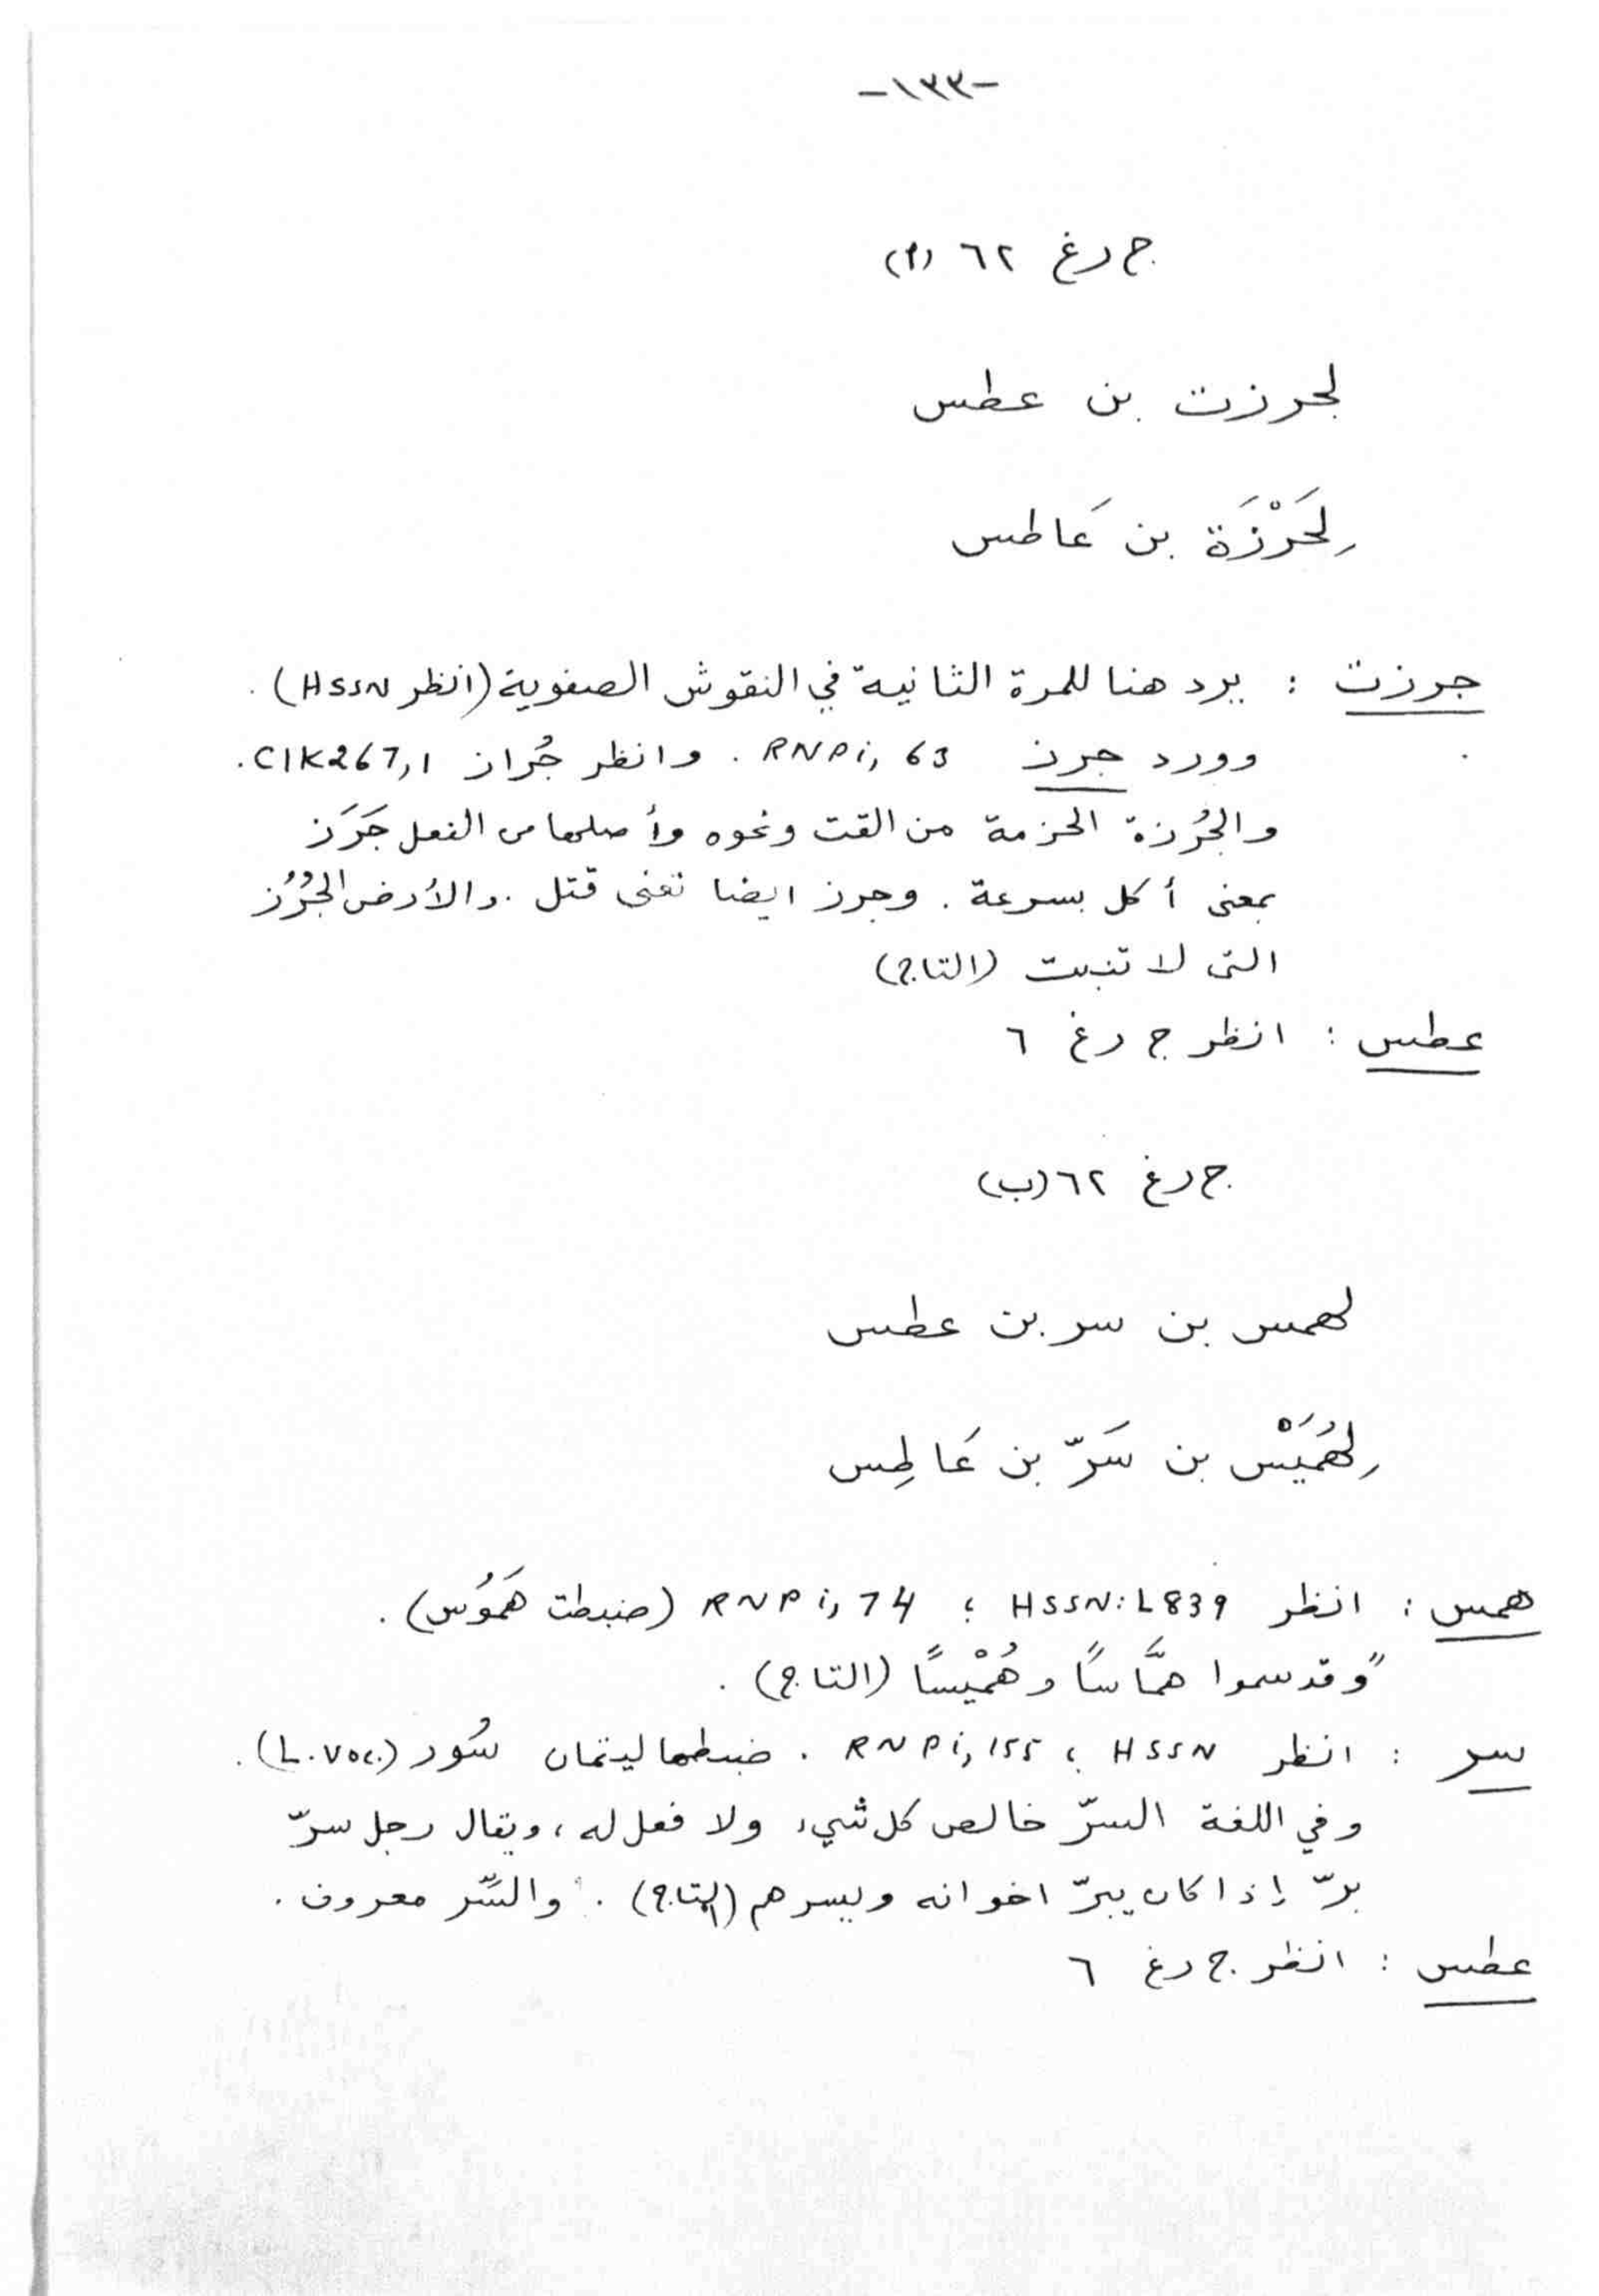 -١٣٣-
ج رغ ٦٢ (أ)
لجرزت بن عطس
لِجَرْزَة بن عَاطس
جرزت : يرد هنا للمرة الثانية في النقوش الصفوية (انظر HSSN) .
وورد جرز RNP i, 63 . وانظر جُراز CIK 267,1.
والجُرزة الحزمة من القت ونحوه وأصلها من الفعل جَرَز
بمعنى أكل بسرعة . وجرز ايضا تعنى قتل . والأرض الجُرُز
التى لا تنبت (التاج)
عطس : انظر ج رغ ٦
ج رغ ٦٢ (ب)
لهمس بن سر بن عطس
لِهُمَيْس بن سَرّ بن عَاطِس
همس : انظر HSSN: L 839 ؛ RNP i, 74 (ضبطت هَمُوس) .
"وقد سموا همَّاسًا وهُمْيسًا (التاج) .
سر : انظر HSSN ؛ RNP i, 155 . ضبطها ليتمان سُور (L. Voc.) .
وفي اللغة السرّ خالص كل شيء ولا فعل له ، ويقال رجل سرّ
برّ إذا كان يبرّ اخوانه ويسرهم (التاج) . والسِّر معروف .
عطس : انظر ج رغ ٦